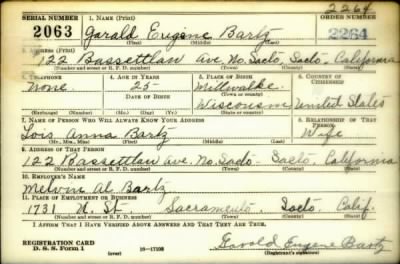 2264
SERIAL NUMBER 1. NAME (Print) ORDER NUMBER
2063 Garald Eugene Bartz 2264
(First) (Middle) (Last)
2. ADDRESS (Print)
122 Bassettlaw Ave No. Sacto, Sacto, California
(Number and street or R. F. D. number) (Town) (County) (State)
3. TELEPHONE 4. AGE IN YEARS 5. PLACE OF BIRTH 6. COUNTRY OF CITIZENSHIP
None 25 Milwalke
DATE OF BIRTH (Town or county)
Wisconsine United States
(Exchange) (Number) (Mo.) (Day) (Yr.) (State or country)
7. NAME OF PERSON WHO WILL ALWAYS KNOW YOUR ADDRESS 8. RELATIONSHIP OF THAT PERSON
Lois Anna Bartz Wife
(Mr., Mrs., Miss) (First) (Middle) (Last)
9. ADDRESS OF THAT PERSON
122 Bassettlaw Ave. No. Sacto- Sacto, California
(Number and street or R. F. D. number) (Town) (County) (State)
10. EMPLOYER'S NAME
Melvin Al Bartz
11. PLACE OF EMPLOYMENT OR BUSINESS
1731 St Sacramento, Sacto, Calif.
(Number and street or R. F. D. number) (Town) (County) (State)
I AFFIRM THAT I HAVE VERIFIED ABOVE ANSWERS AND THAT THEY ARE TRUE.
REGISTRATION CARD
D. S. S. Form 1 (over) 16-17105 Garold Eugene Bartz
(Registrant's signature)